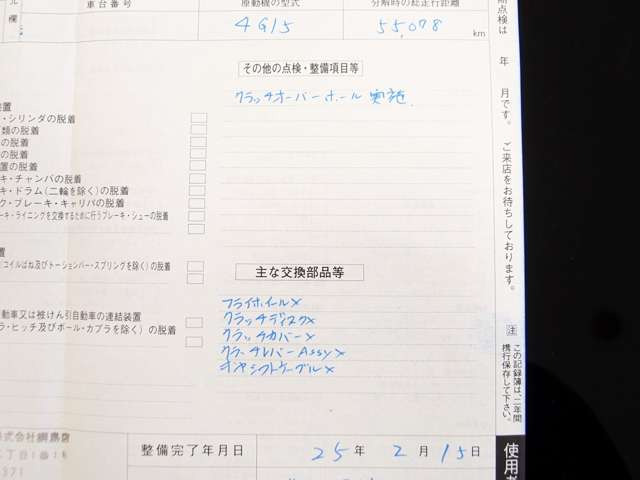 車台番号
原動機の型式
分解時の総走行距離
4G15
55,078
km
その他の点検・整備項目等
クラッチオーバーホール 実施.
・シリンダの脱着
類の脱着
の脱着
の脱着
置の脱着
キ・チャンバの脱着
キ・ドラム(二輪を除く)の脱着
ク・ブレーキ・キャリパの脱着
ーキ・ライニングを交換するために行うブレーキ・シューの脱着
置
コイルばね及びトーションバー・スプリングを除く)の脱着
主な交換部品等
動車又は被けん引自動車の連結装置
ラ・ヒッチ及びボール・カプラを除く)の脱着
フライホイール×
クラッチディスク×
クラッチカバー×
クラッチレバーAssy×
ギヤシフトケーブル×
整備完了年月日
25年 2月 15日
点検は 年 月です。 ご来店をお待ちしております。
注 この記録簿は、二年間
携行保存して下さい。
使用者